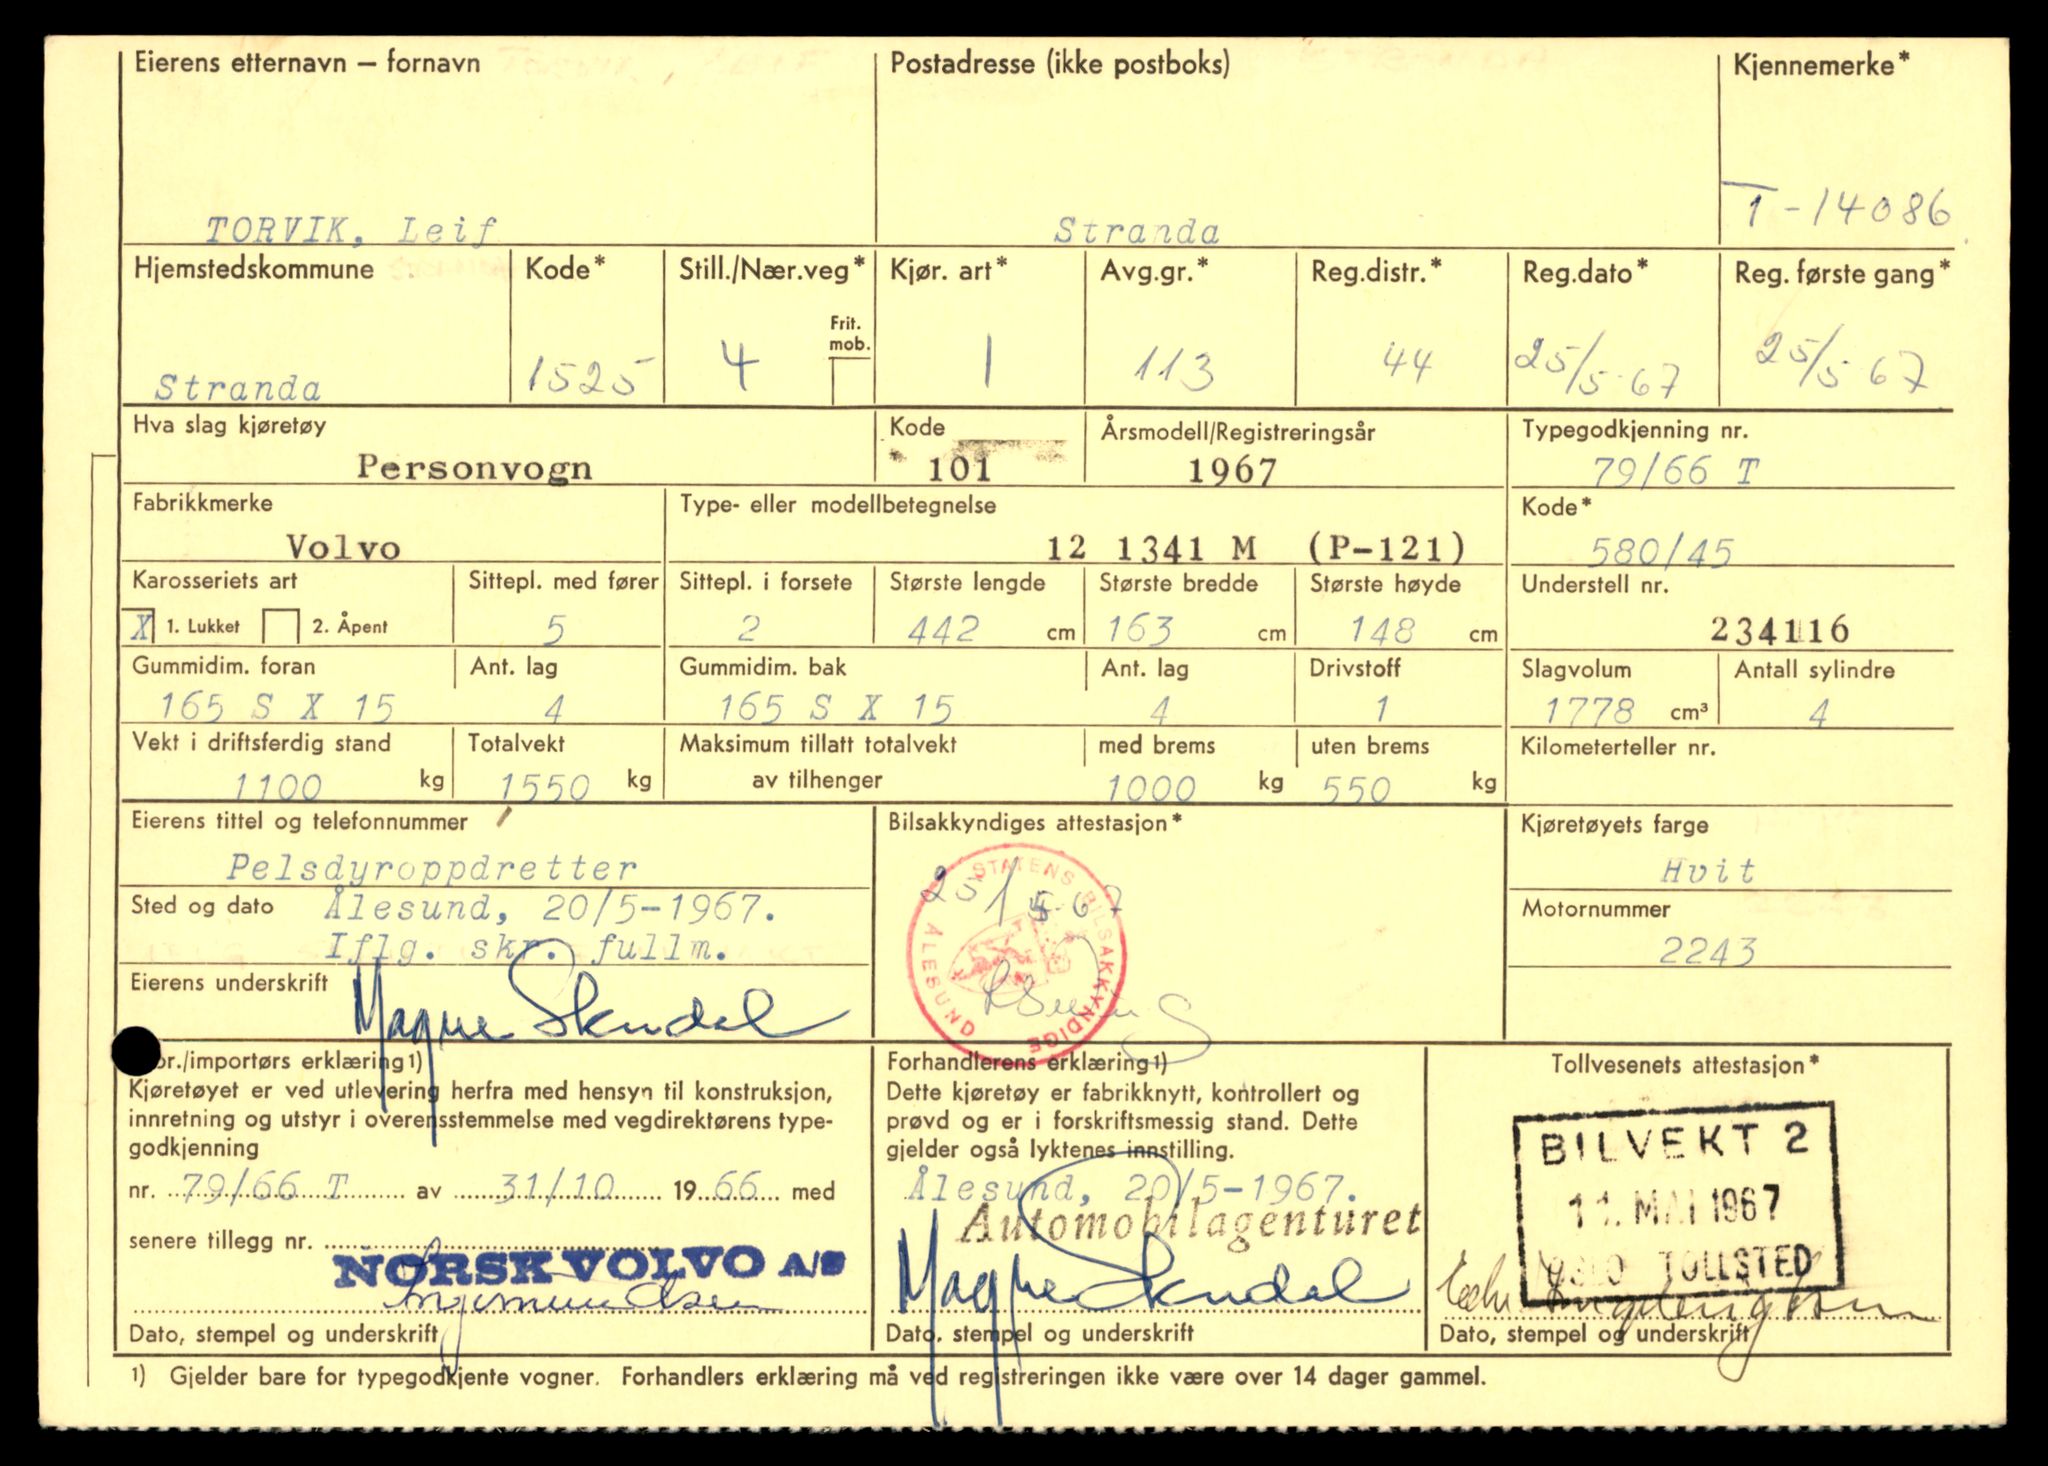 Eierens etternavn – fornavn
Postadresse (ikke postboks)
Kjennemerke*
TORVIK, Leif
Stranda
T-14086
Hjemstedskommune
Kode*
Still./Nær.veg*
Kjør. art*
Avg.gr.*
Reg.distr.*
Reg.dato*
Reg. første gang*
Frit. mob.
Stranda
1525
4
1
113
44
25/5-67
25/5-67
Hva slag kjøretøy
Kode
Årsmodell/Registreringsår
Typegodkjenning nr.
Personvogn
101
1967
79/66 T
Fabrikkmerke
Type- eller modellbetegnelse
Kode*
Volvo
12 1341 M (P-121)
580/45
Karosseriets art
Sittepl. med fører
Sittepl. i forsete
Største lengde
Største bredde
Største høyde
Understell nr.
X 1. Lukket
2. Åpent
5
2
442 cm
163 cm
148 cm
234116
Gummidim. foran
Ant. lag
Gummidim. bak
Ant. lag
Drivstoff
Slagvolum
Antall sylindre
165 S X 15
4
165 S X 15
4
1
1778 cm³
4
Vekt i driftsferdig stand
Totalvekt
Maksimum tillatt totalvekt
med brems
uten brems
Kilometerteller nr.
1100 kg
1550 kg
av tilhenger
1000 kg
550 kg
Eierens tittel og telefonnummer
Bilsakkyndiges attestasjon*
Kjøretøyets farge
Pelsdyroppdretter
Hvit
Sted og dato Ålesund, 20/5-1967.
Iflg. skr. fullm.
25/5-67
STATENS BILSAKKYNDIGE
ÅLESUND
Motornummer
2243
Eierens underskrift
Magne Skudal
or./importørs erklæring1)
Kjøretøyet er ved utlevering herfra med hensyn til konstruksjon,
innretning og utstyr i overensstemmelse med vegdirektørens type-
godkjenning
nr. 79/66 T av 31/10 1966 med
senere tillegg nr.
NORSK VOLVO A/S
Dato, stempel og underskrift
Forhandlerens erklæring1)
Dette kjøretøy er fabrikknytt, kontrollert og
prøvd og er i forskriftsmessig stand. Dette
gjelder også lyktenes innstilling.
Ålesund, 20/5-1967.
Automobilagenturet
Magne Skudal
Dato, stempel og underskrift
Tollvesenets attestasjon*
BILVEKT 2
11. MAI 1967
OSLO TOLLSTED
Dato, stempel og underskrift
1) Gjelder bare for typegodkjente vogner. Forhandlers erklæring må ved registreringen ikke være over 14 dager gammel.